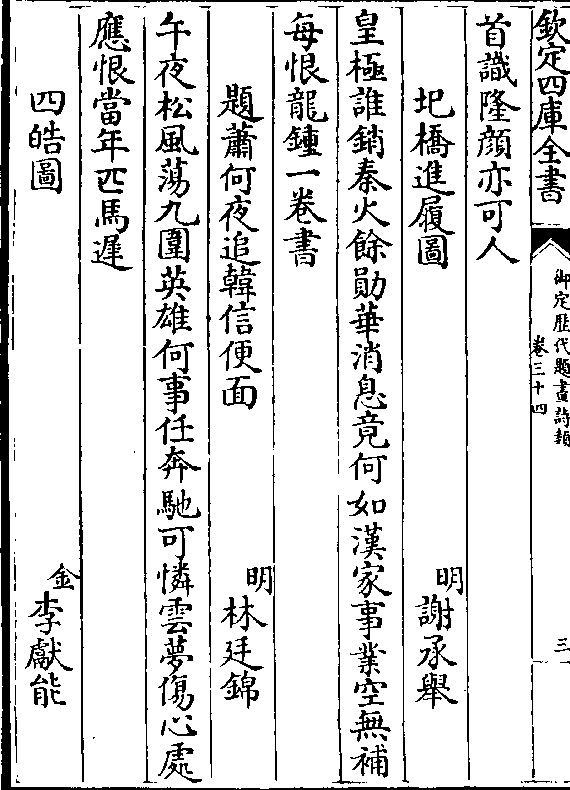 欽定四庫全書
御定歷代題畫詩類
卷三十四
三
首識隆顔亦可人
圯橋進履圖
明
謝承舉
皇極誰銷秦火餘勛華消息竟何如漢家事業空無補
每恨龍鍾一卷書
題蕭何夜追韓信便面
明
林廷錦
午夜松風蕩九圍英雄何事任奔馳可憐雲夢傷心處
應恨當年匹馬遲
四皓圖
金
李獻能